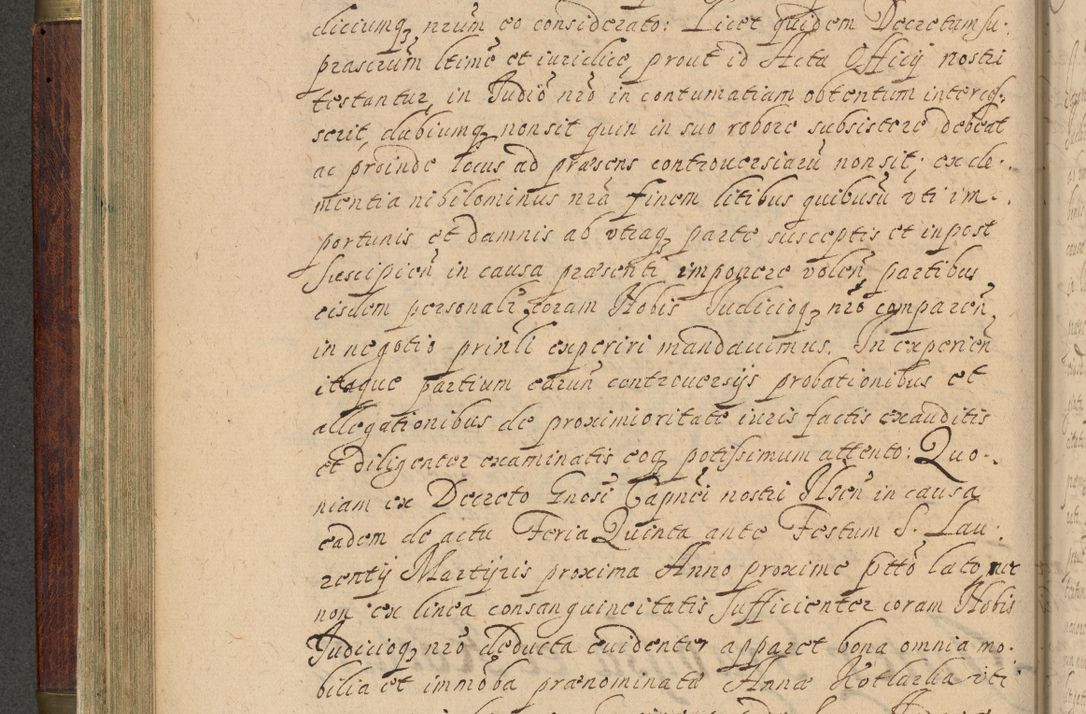 diciumq3 nrum eo considerato: Licet quidem Decretum su:
prascrum ltime et iuridice, prout id Acta Officij nostri
testantur, in Judio nro in contumatiam obtentum interces:
serit, dubiumq3 non sit quin in suo robore subsistere debeat
ac proinde locus ad præsens controuersiaru non sit; ex cle:
mentia nihilominus nra finem litibus quibusu vti im:
portunis et damnis ab vtraq3 parte susceptis et in post
suscipien in causa præsenti imponere volen partibus
eisdem personalr coram Nobis Judicioq3 nro comparen,
in negotio prinli experiri mandauimus. In experien
itaque partium earun controuersijs probationibus et
allegationibus de proximioritate iuris factis exauditis
et diligenter examinatis eoq3 potissimum attento: Quo:
niam ex Decreto Gnosi Capnei nostri Ilsen in causa
eadem de actu Feria Quinta ante Festum S. Lau:
rentij Martyris proxima Anno proxime ptto lato nec
non ex linea consanguineitatis sufficienter coram Nobis
Judicioq3 nro deducta euidenter apparet bona omnia mo:
bilia et immoba prænominatæ Annæ Kotlarka vti